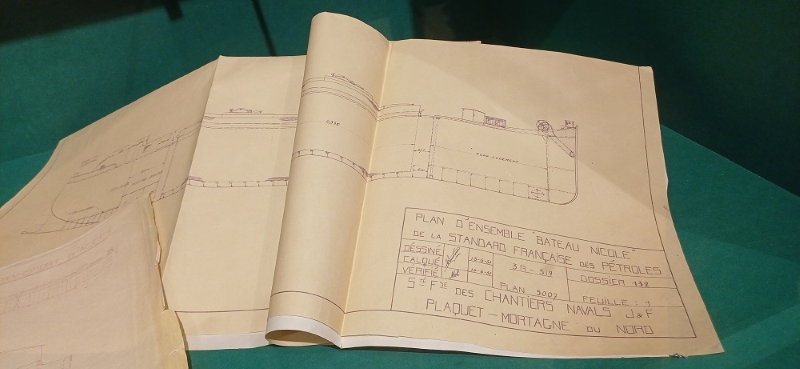 PLAN D'ENSEMBLE "BATEAU NICOLE"
DE LA STANDARD FRANÇAISE DES PÉTROLES
DESSINÉ
CALQUÉ
VÉRIFIÉ
PLAN 3002
DOSSIER 138
FEUILLE : 1
STÉ FSE DES CHANTIERS NAVALS J & F
PLAQUET - MORTAGNE DU NORD